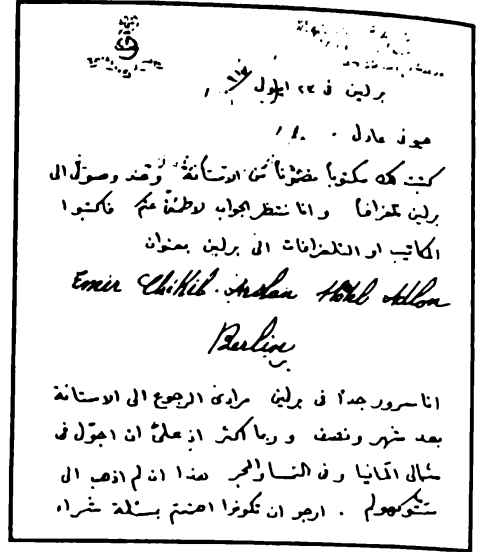 برلين في ٢٣ ايلول
عيوني عادل
كتبت لك مكتوباً مضموناً من الاستانة وعند وصولي الى
برلين تلغرافاً وانا منتظر الجواب لاطمئن عنكم فاكتبوا
المكاتيب او التلغرافات الى برلين بعنوان
Emir Chikib. Arslan Hôtel Adlon
Berlin
انا مسرور جداً في برلين مرادي الرجوع الى الاستانة
بعد شهر ونصف وربما اكثر اذ عليّ ان اجوّل في
شمالي المانيا وفي النمسا والمجر هذا ان لم اذهب الى
ستوكهولم . ارجو ان تكونوا اهتممتم بمسئلة شراء